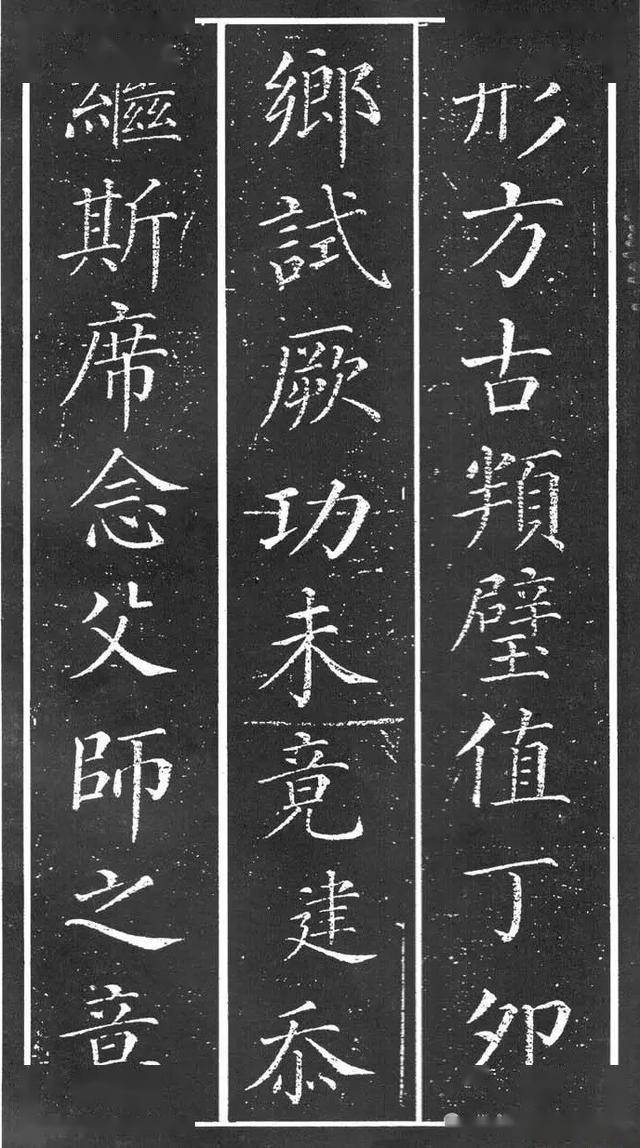 形方古頖璧值丁卯
鄉試厥功未竟建忝
繼斯席念父師之音